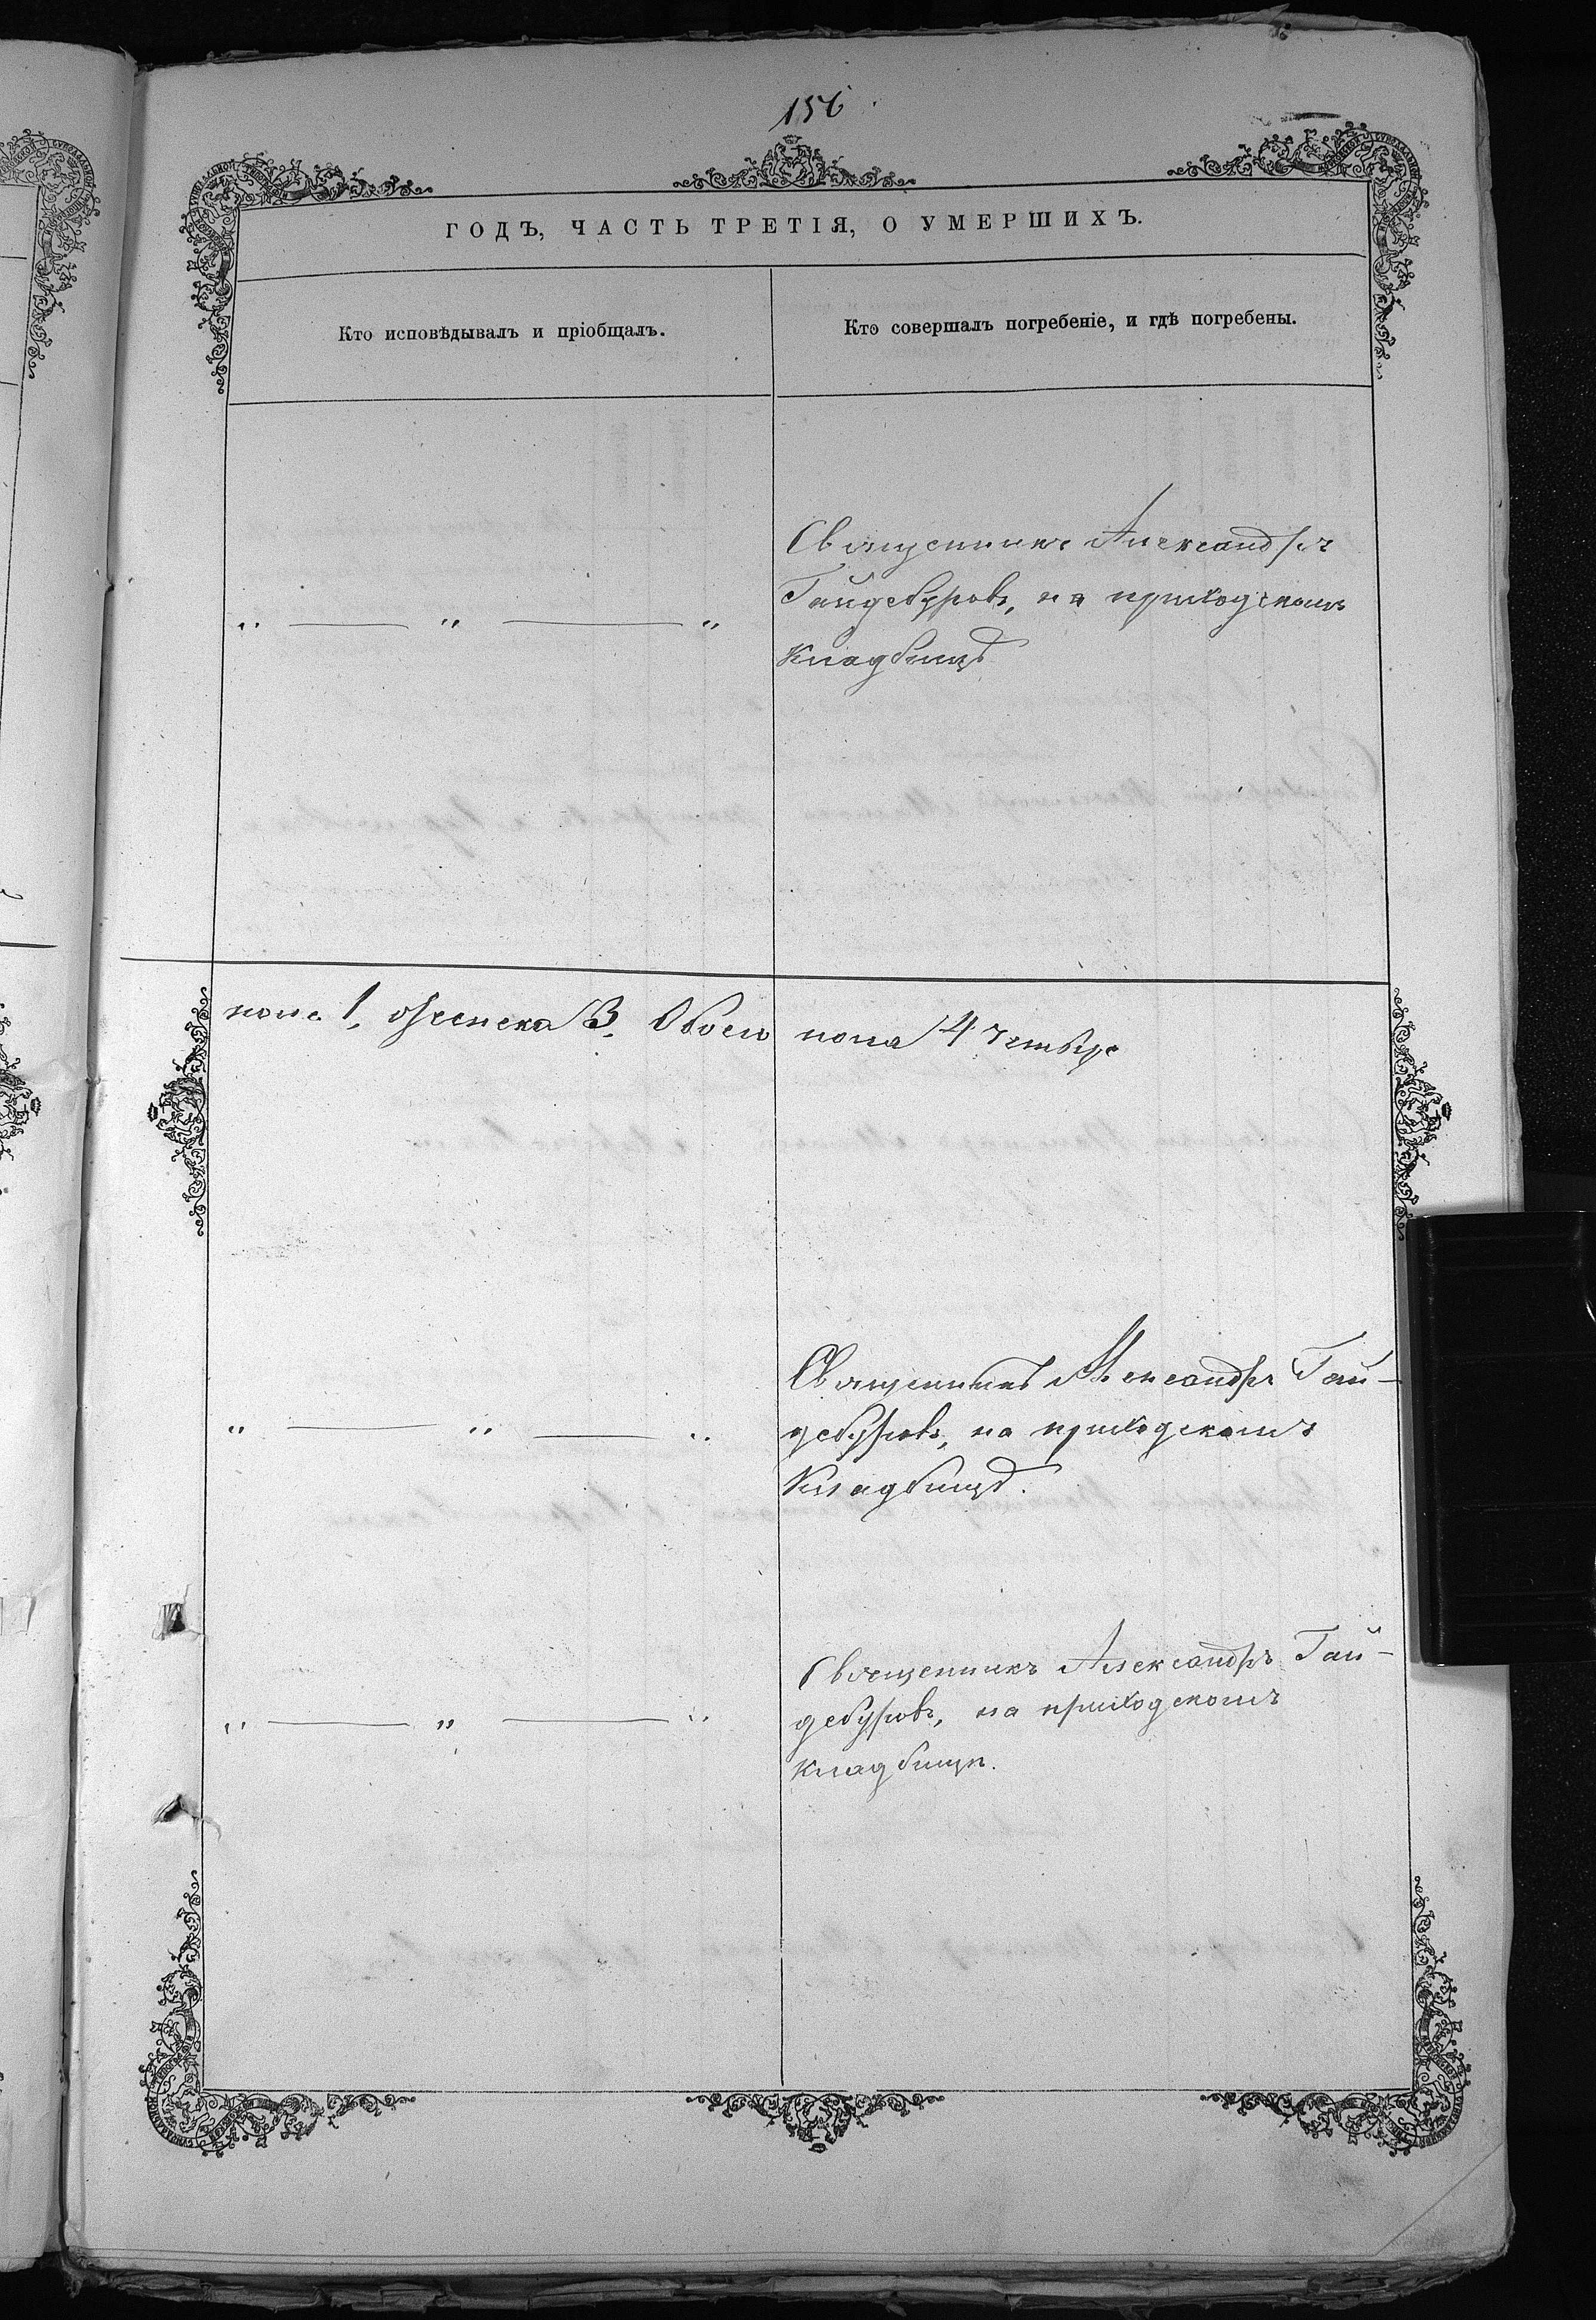 156
ГОДЪ, ЧАСТЬ ТРЕТІЯ, О УМЕРШИХЪ.
Кто исповѣдывалъ и пріобщалъ.
Кто совершалъ погребеніе, и гдѣ погребены.
Священникъ Александръ
„ — „ — „
Гайдебуровъ, на приходскомъ
кладбищѣ
пола 1, женска 3. Обоего пола 4 четыре
Священникъ Александръ Гай-
„ — „ — „
дебуровъ, на приходскомъ
Кладбищѣ.
Священникъ Александръ Гай-
„ — „ — „
дебуровъ, на приходскомъ
кладбищѣ.